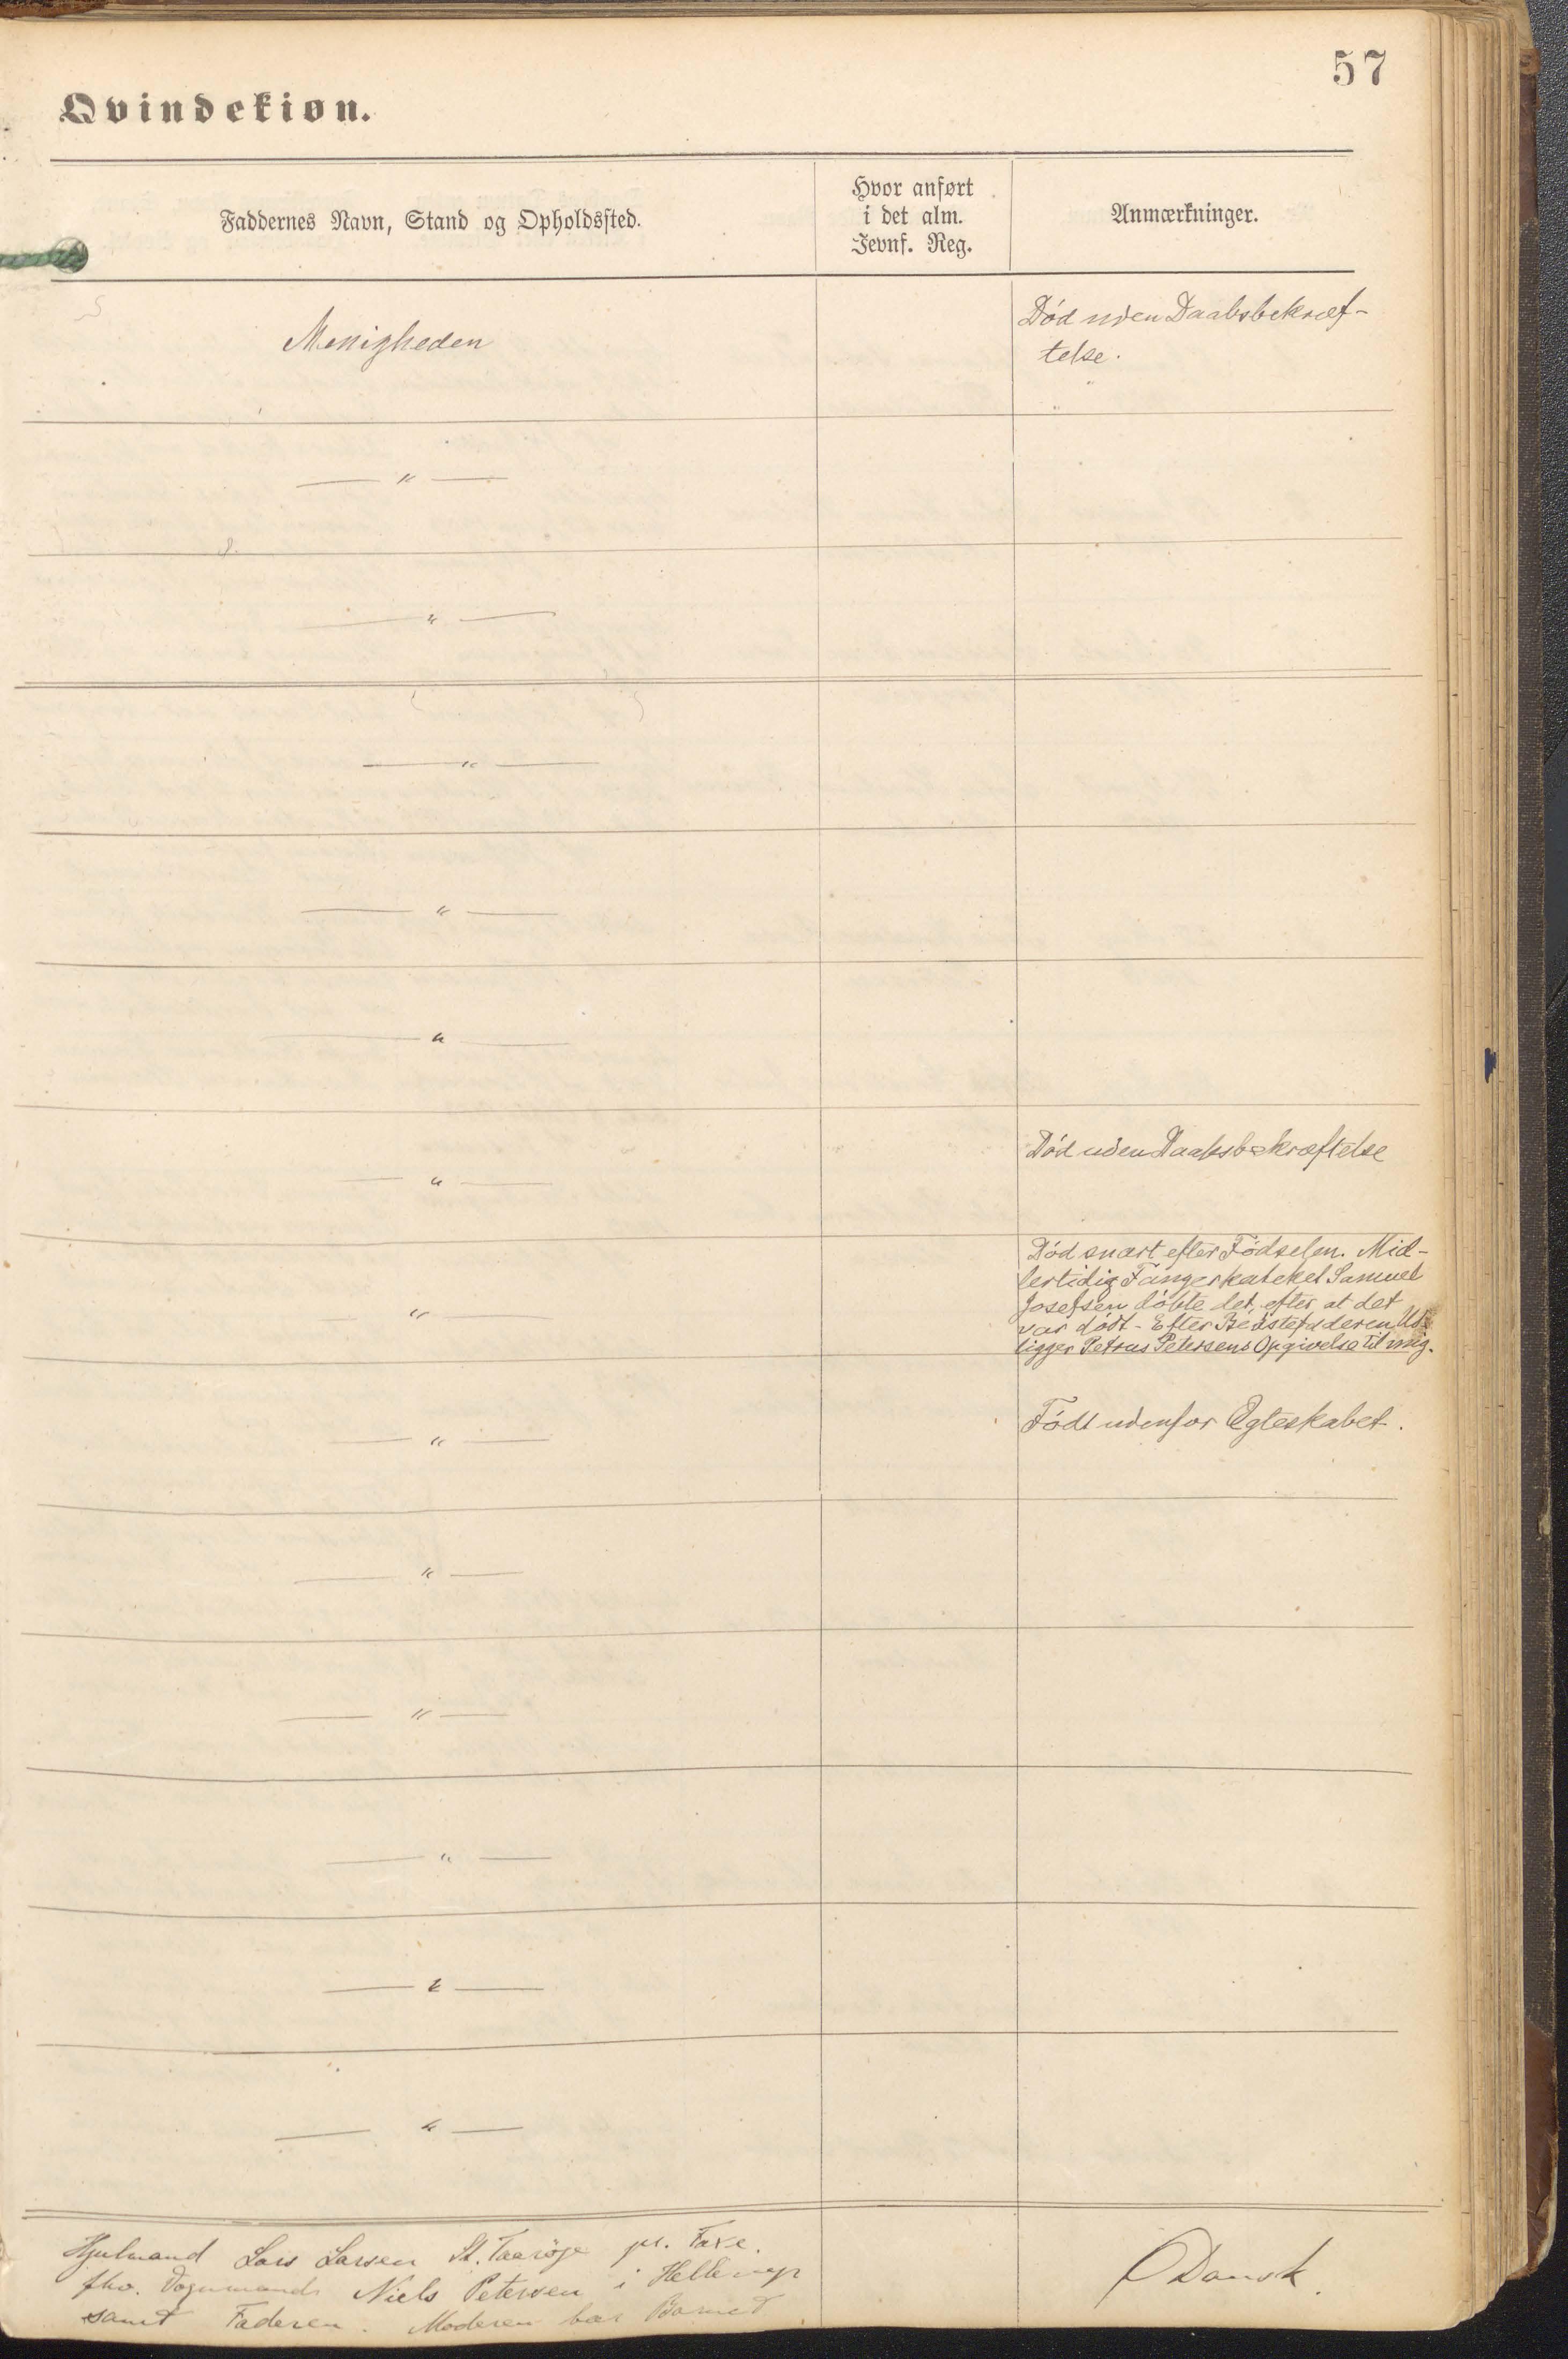 57
Qvindekiøn.
Faddernes Navn, Stand og Opholdssted.
Hvor anført
i det alm.
Jevnf. Reg.
Anmærkninger.
Menigheden
Død uden Daabsbekræf-
telse.
— " —
— " —
— " —
— " —
— " —
— " —
Død uden Daabsbekræftelse
"
Død snart efter Fødselen. Mid-
lertidig Fangerkateket Samuel
Josefsen døbte det, efter at det
var dødt - Efter Bedstefaderen Ud-
ligger Petrus Petersens Opgivelse til mig.
— " —
Født udenfor Egteskabet.
— " —
— " —
— " —
— " —
— " —
Hjulmand Lars Larsen St. Taarøje pr. Faxe.
fhv. Vognmand Niels Petersen i Hellerup
samt Faderen. Moderen bar Barnet
Dansk.